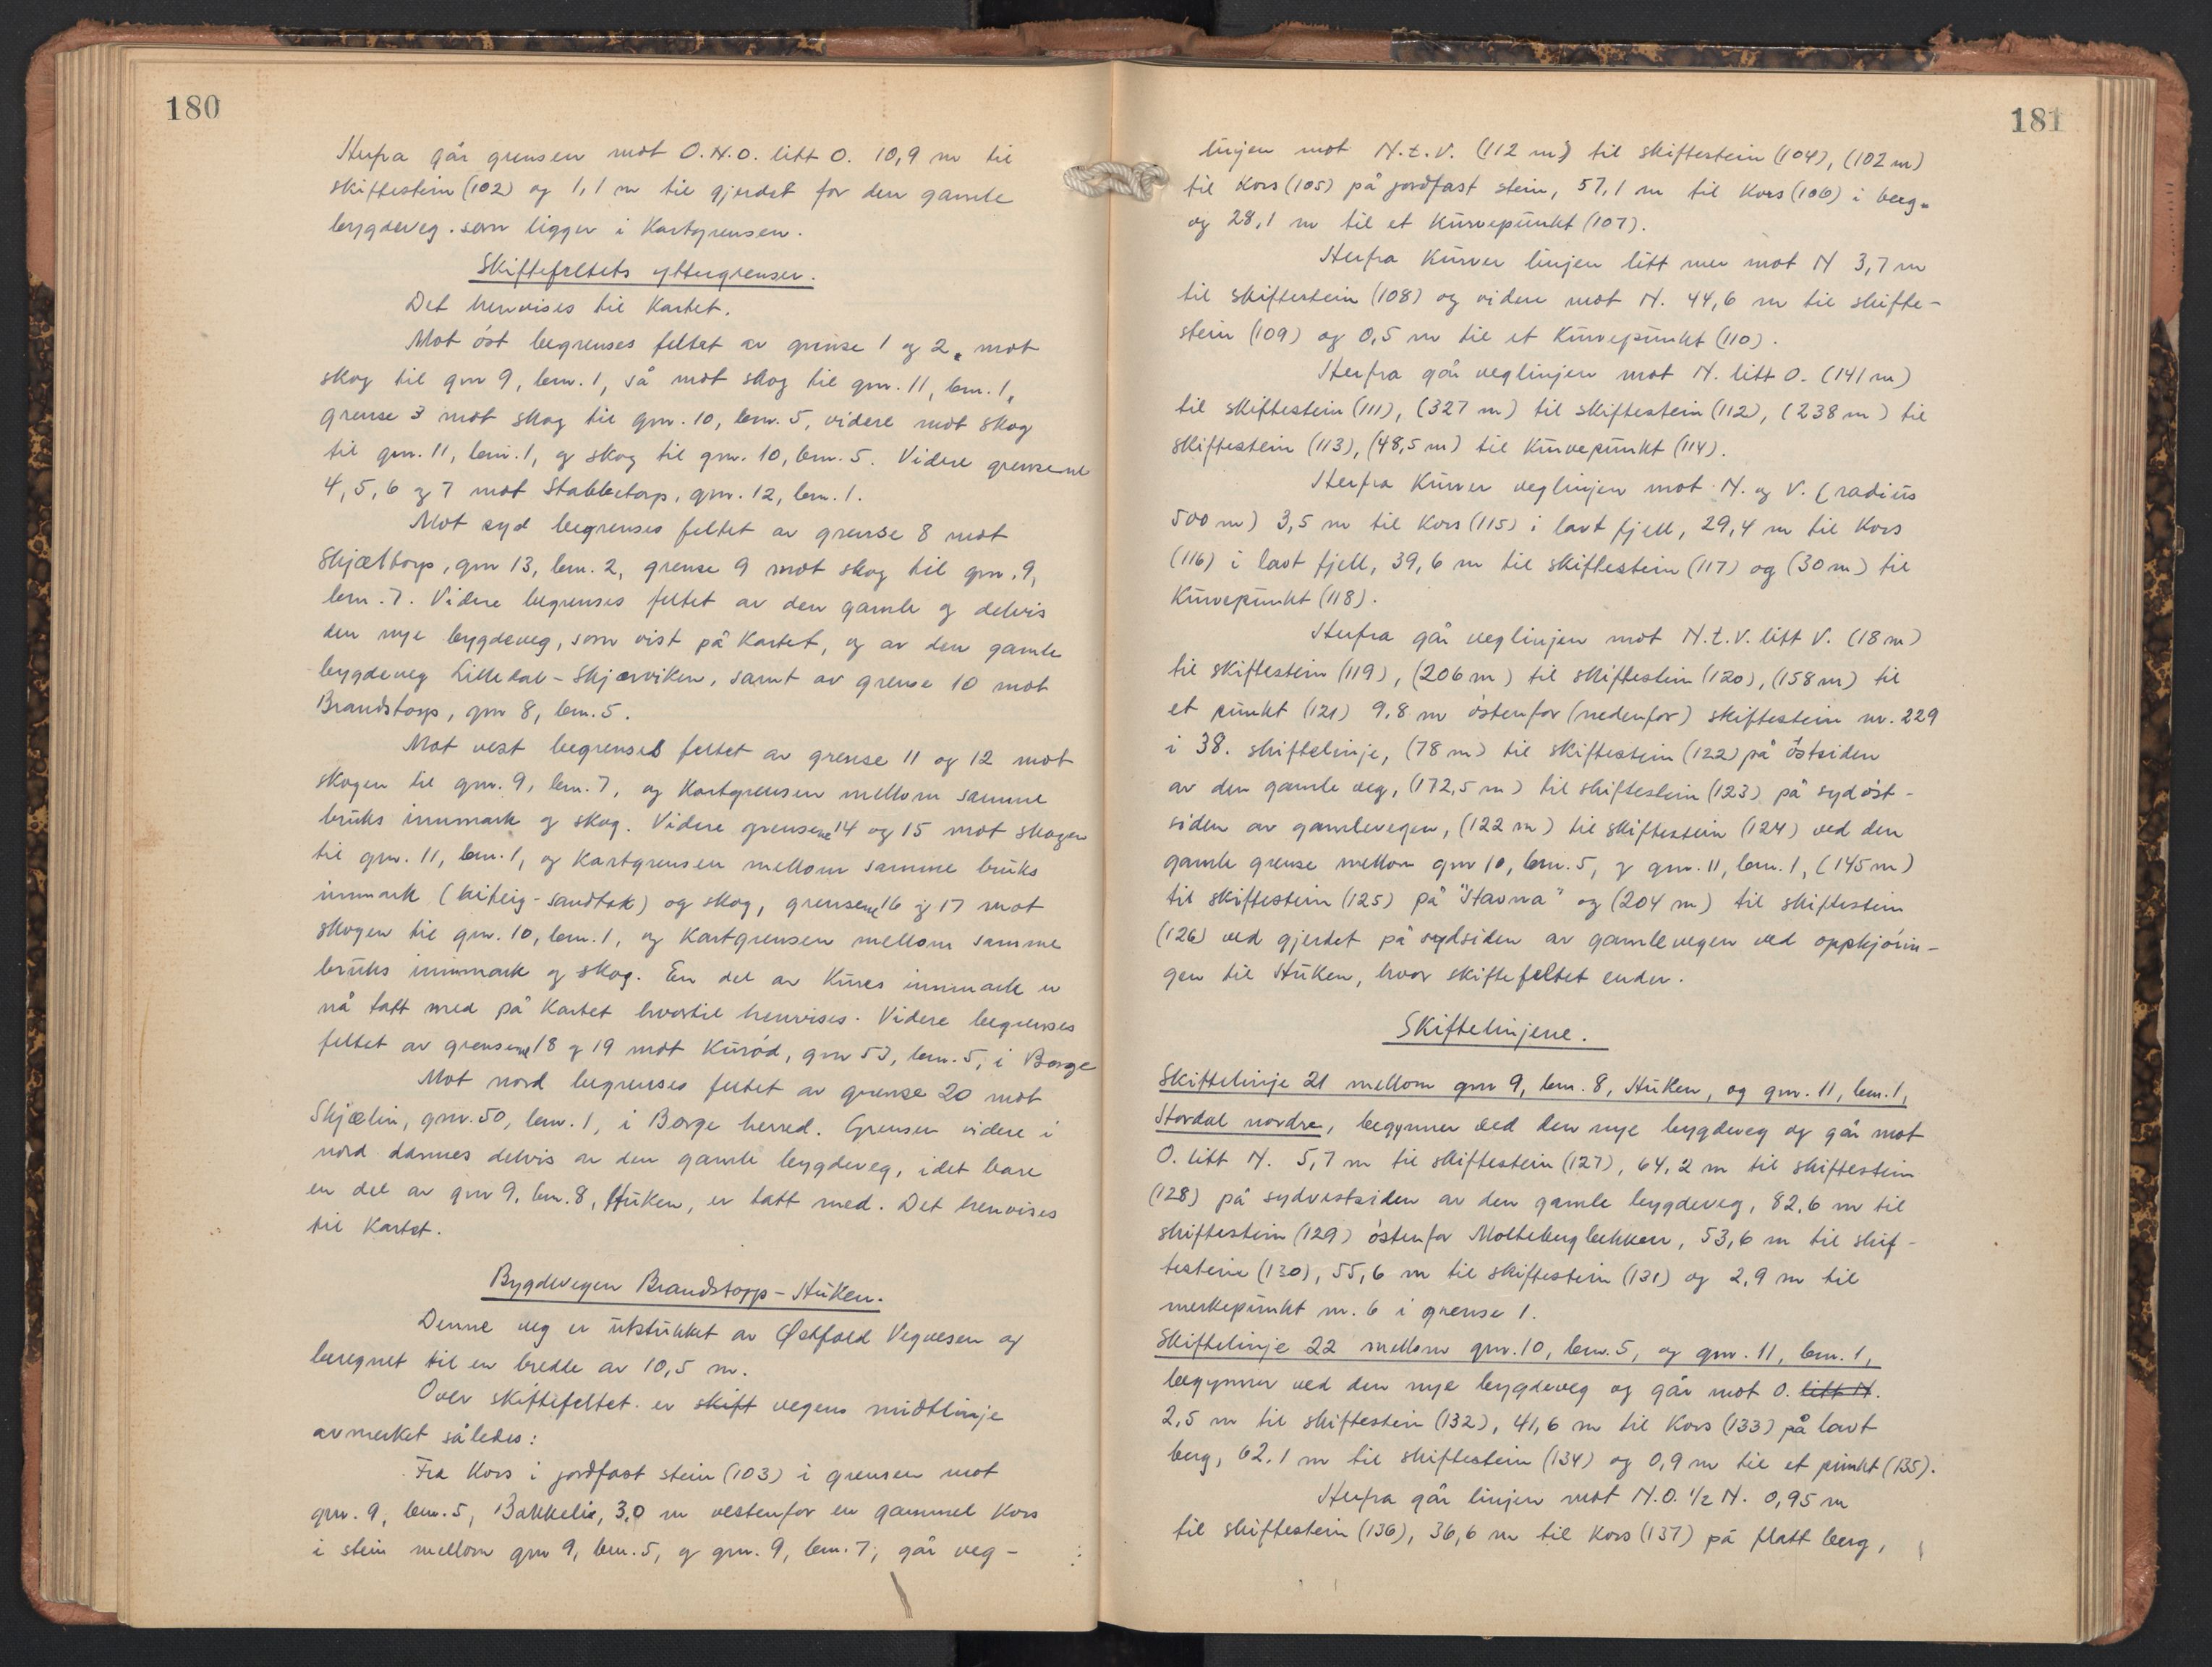 180
Herfra går grensen mot O.N.O. litt O. 10,9 m til
skiftestein (102) og 1,1 m til gjerdet for den gamle
bygdeveg. som ligger i kartgrensen.
Skiftefeltets yttergrenser.
Det henvises til kartet.
Mot öst begrenses feltet av grense 1 og 2, mot
skog til gnr 9, bnr. 1, så mot skog til gnr. 11, bnr. 1,
grense 3 mot skog til gnr. 10, bnr. 5, videre mot skog
til gnr. 11, bnr. 1, og skog til gnr. 10, bnr. 5. Videre grensene
4, 5, 6 og 7 mot Stabbetorp, gnr. 12, bnr. 1.
Mot syd begrenses feltet av grense 8 mot
Skjæltorp, gnr 13, bnr. 2, grense 9 mot skog til gnr. 9,
bnr. 7. Videre begrenses feltet av den gamle og delvis
den nye bygdeveg, som vist på kartet, og av den gamle
bygdeveg Lilledal - Skjærviken, samt av grense 10 mot
Brandstorp, gnr 8, bnr. 5.
Mot vest begrenses feltet av grense 11 og 12 mot
skogen til gnr. 9, bnr. 7, og kartgrensen mellom samme
bruks innmark og skog. Videre grensene 14 og 15 mot skogen
til gnr. 11, bnr. 1, og kartgrensen mellom samme bruks
innmark (biteig - sandtak) og skog, grensene 16 og 17 mot
skogen til gnr. 10, bnr. 1, og kartgrensen mellom samme
bruks innmark og skog. En del av Kures innmark er
nå tatt med på kartet hvortil henvises. Videre begrenses
feltet av grensene 18 og 19 mot Kuröd, gnr 53, bnr. 5, i Borge
Mot nord begrenses feltet av grense 20 mot
Skjælin, gnr. 50, bnr. 1, i Borge herred. Grensen videre i
nord dannes delvis av den gamle bygdeveg, idet bare
en del av gnr 9, bnr. 8, Huken, er tatt med. Det henvises
til kartet.
Bygdevegen Brandstorp - Huken.
Denne veg er utstukket av Østfold Vegvesen og
beregnet til en bredde av 10,5 m.
Over skiftefeltet. er skift vegens midtlinje
avmerket således:
Fra kors i jordfast stein (103) i grensen mot
gnr. 9, bnr. 5, Bakkelie, 3,0 m vestenfor en gammel kors
i stein mellom gnr 9, bnr. 5, og gnr. 9, bnr. 7, går veg-
181
linjen mot N.t.V. (112 m) til skiftestein (104), (102 m)
til kors (105) på jordfast stein, 57,1 m til kors (106) i berg
og 28,1 m til et kurvepunkt (107).
Herfra kurver linjen litt mer mot N 3,7 m
til skiftestein (108) og videre mot N. 44,6 m til skifte-
stein (109) og 0,5 m til et kurvepunkt (110).
Herfra går veglinjen mot N. litt O. (141 m)
til skiftestein (111), (327 m) til skiftestein (112), (238 m) til
skiftestein (113), (48,5 m) til kurvepunkt (114).
Herfra kurver veglinjen mot N. og V. (radius
500 m) 3,5 m til kors (115) i lavt fjell, 29,4 m til kors
(116) i lavt fjell, 39,6 m til skiftestein (117) og (30 m) til
kurvepunkt (118).
Herfra går veglinjen mot N.t.V. litt V. (18 m)
til skiftestein (119), (206 m) til skiftestein (120), (158 m) til
et punkt (121) 9,8 m östenfor (nedenfor) skiftestein nr. 229
i 38. skiftelinje, (78 m) til skiftestein (122) på östsiden
av den gamle veg, (172,5 m) til skiftestein (123) på sydöst-
siden av gamlevegen, (122 m) til skiftestein (124) ved den
gamle grense mellom gnr 10, bnr. 5, og gnr. 11, bnr. 1, (145 m)
til skiftestein (125) på "Havna" og (204 m) til skiftestein
(126) ved gjerdet på sydsiden av gamlevegen ved oppkjörin-
gen til Huken, hvor skiftefeltet ender.
Skiftelinjene.
Skiftelinje 21 mellom gnr 9, bnr. 8, Huken, og gnr. 11, bnr. 1,
Stordal nordre, begynner ved den nye bygdeveg og går mot
O. litt N. 5,7 m til skiftestein (127), 64,2 m til skiftestein
(128) på sydvestsiden av den gamle bygdeveg, 82,6 m til
skiftestein (129) östenfor Molteberglekken, 53,6 m til skif-
testein (130), 55,6 m til skiftestein (131) og 2,9 m til
merkepunkt nr. 6 i grense 1.
Skiftelinje 22 mellom gnr. 10, bnr. 5, og gnr. 11, bnr. 1,
begynner ved den nye bygdeveg og går mot O. litt N.
2,5 m til skiftestein (132), 41,6 m til kors (133) på lavt
berg, 62,1 m til skiftestein (134) og 0,9 m til et punkt (135).
Herfra går linjen mot N.O. 1/2 N. 0,95 m
til skiftestein (136), 36,6 m til kors (137) på flatt berg,